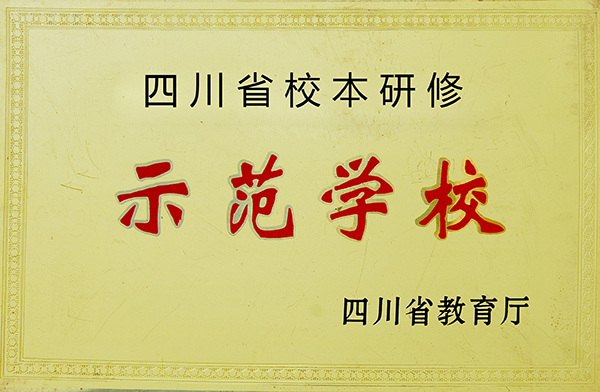 四川省校本研修
示范学校
四川省教育厅